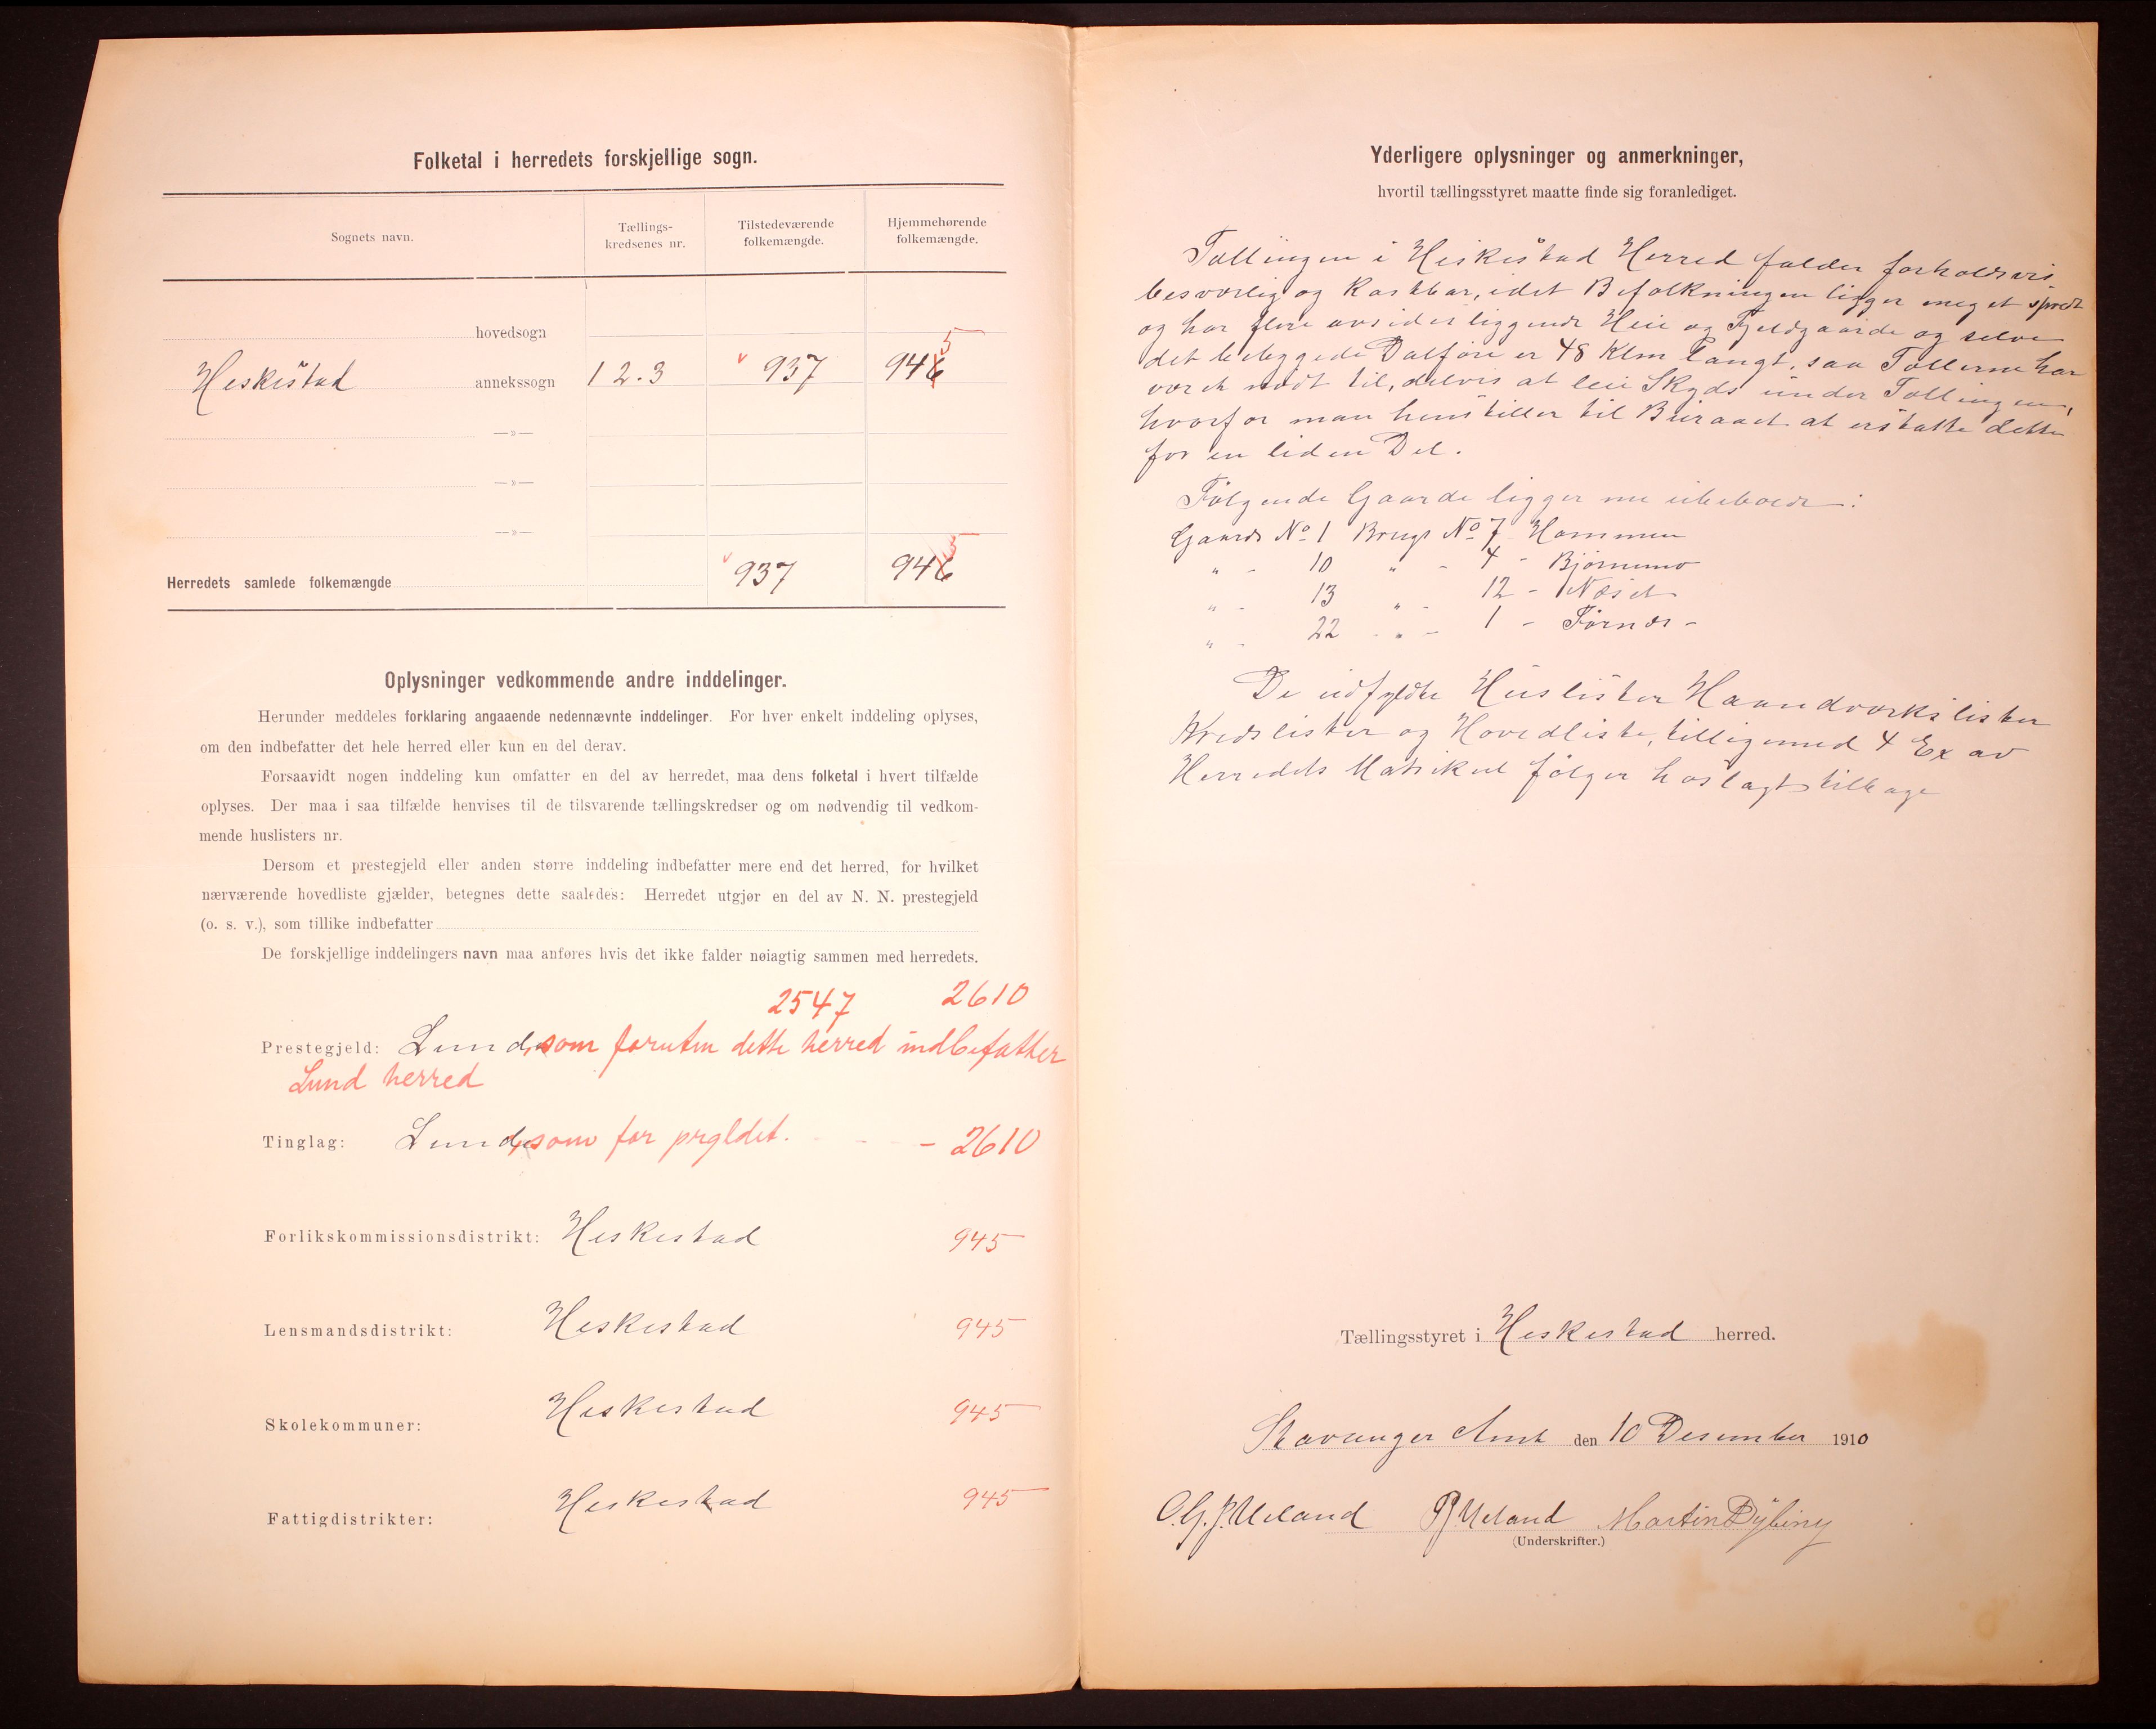 Folketal i herredets forskjellige sogn.
Sognets navn.
Tællings-
kredsenes nr.
Tilstedeværende
folkemængde.
Hjemmehørende
folkemængde.
hovedsogn
5
Heskestad annekssogn 1 2. 3 v 937 946
—»—
—»—
—»—
5
Herredets samlede folkemængde v 937 946
Oplysninger vedkommende andre inddelinger.
Herunder meddeles forklaring angaaende nedennævnte inddelinger. For hver enkelt inddeling oplyses,
om den indbefatter det hele herred eller kun en del derav.
Forsaavidt nogen inddeling kun omfatter en del av herredet, maa dens folketal i hvert tilfælde
oplyses. Der maa i saa tilfælde henvises til de tilsvarende tællingskredser og om nødvendig til vedkom-
mende huslisters nr.
Dersom et prestegjeld eller anden større inddeling indbefatter mere end det herred, for hvilket
nærværende hovedliste gjælder, betegnes dette saaledes: Herredet utgjør en del av N. N. prestegjeld
(o. s. v.), som tillike indbefatter
De forskjellige inddelingers navn maa anføres hvis det ikke falder nøiagtig sammen med herredets.
2547 2610
Prestegjeld: Lund, som foruten dette herred indbefatter
Lund herred
Tinglag: Lund, som for prgldet. - 2610
Forlikskommissionsdistrikt: Heskestad 945
Lensmandsdistrikt: Heskestad 945
Skolekommuner: Heskestad 945
Fattigdistrikter: Heskestad 945
Yderligere oplysninger og anmerkninger,
hvortil tællingsstyret maatte finde sig foranlediget.
Tællingen i Heskestad Herred falder forholdsvis
besværlig og kostbar, idet Befolkningen ligger meget spredt
og har flere avsidesliggende Heie og Fjeldgaarde og selve
det bebyggede Dalføre er 48 Klm langt, saa Tællerne har
været nødt til, delvis at leie Skyds under Tællingen,
hvorfor man henstiller til Byraaet at erstatte dette
for en liden Del.
Følgende Gaarde ligger nu ubeboede:
Gaards No 1 Brugs No 7 Hammen
" - 10 " - 4 - Bjørnemo
" - 13 " - 12 - Næset
" - 22 - " - 1 - Førnæs -
De udfyldte Huslister Haandværkslister
Kredslister og Hovedliste, tilligemed 4 Ex av
Herredets Matrikul følger hoslagt tilbage
Tællingsstyret i Heskestad herred.
Stavanger Amt den 10 Desember 1910
O. G. P. Ueland P J Ueland Martin Dybing
(Underskrifter.)